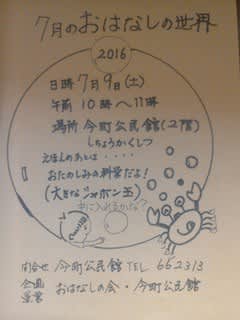 7月のおはなしの世界
2016
日時 7月9日(土)
午前 10時〜11時
場所 今町公民館(2階)
しちょうかくしつ
えほんのあとは・・・・
おたのしみの科学だよ!
(大きなシャボン玉)
中に入れるかな?
問合せ 今町公民館 TEL 662313
企画 運営 おはなしの会・今町公民館